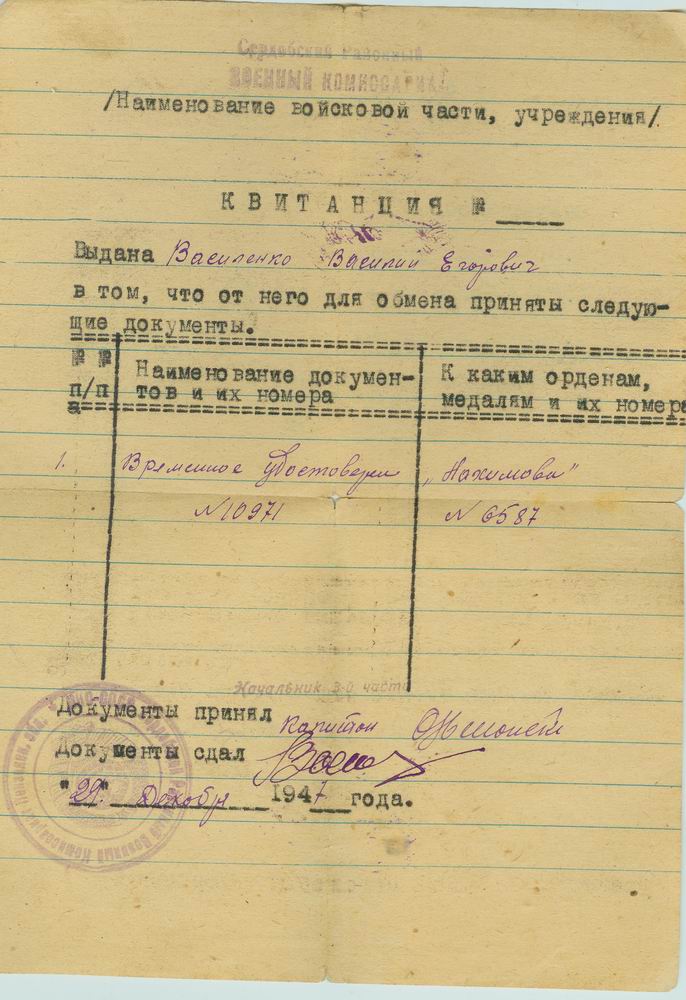 Сердобский Районный
ВОЕННЫЙ КОМИССАРИАТ
/Наименование войсковой части, учреждения/.
КВИТАНЦИЯ №
Выдана Василенко Василий Егорович
в том, что от него для обмена приняты следую-
щие документы.
№ №
п/п
а
Наименование докумен-
тов и их номера
К каким орденам,
медалям и их номера
1. Временное удостоверен „Нахимова"
№ 10971 № 6587
Начальник 3-й части
Документы принял капитан
Документы сдал
"29" Декабря 1947 года.